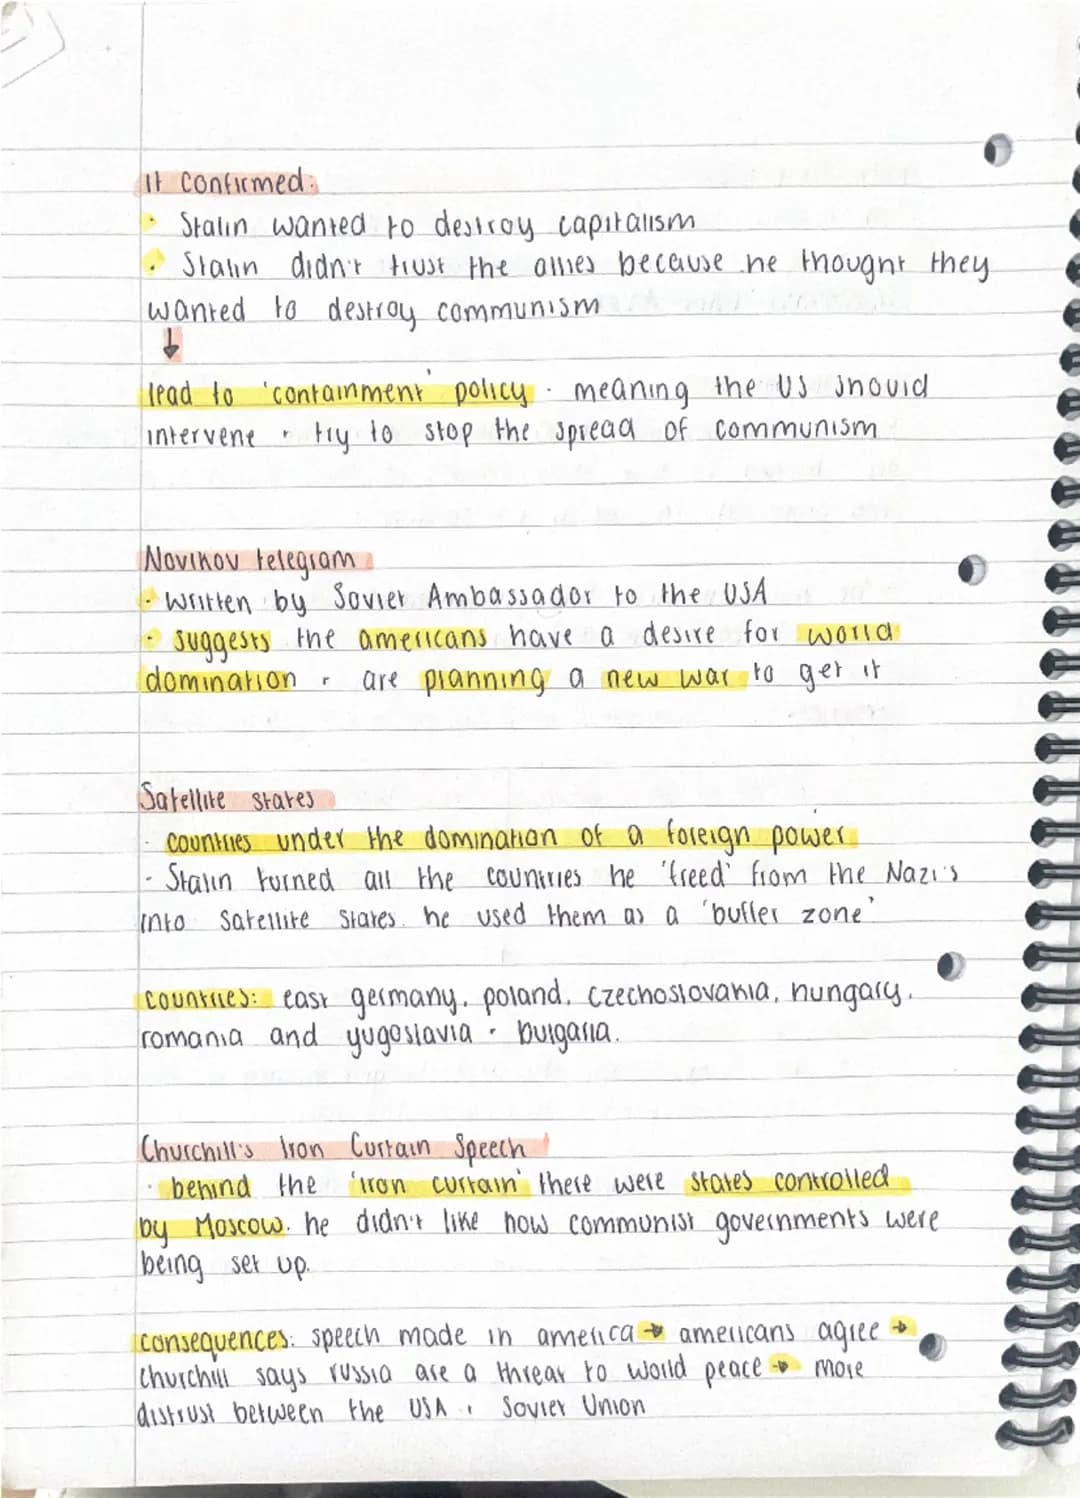 It confirmed:
· Stalin wanted to destroy capitalism
· Stalin didn't trust the allies because he thought they
wanted to destroy communism
↓
lead to 'containment' policy · meaning the US should
intervene + try to stop the spread of communism
Novikov telegram
· written by Soviet Ambassador to the USA
· suggests the americans have a desire for world
domination + are planning a new war to get it
Satellite states
· countries under the domination of a foreign power
· Stalin turned all the countries he 'freed' from the Nazi's
into satellite states. he used them as a 'buffer zone'
countries: east germany, poland, czechoslovakia, hungary,
romania and yugoslavia + bulgaria.
Churchill's Iron Curtain Speech
· behind the 'iron curtain' there were states controlled
by Moscow. he didn't like how communist governments were
being set up.
consequences: speech made in america → americans agree →
Churchill says russia are a threat to world peace → more
distrust between the USA + Soviet Union